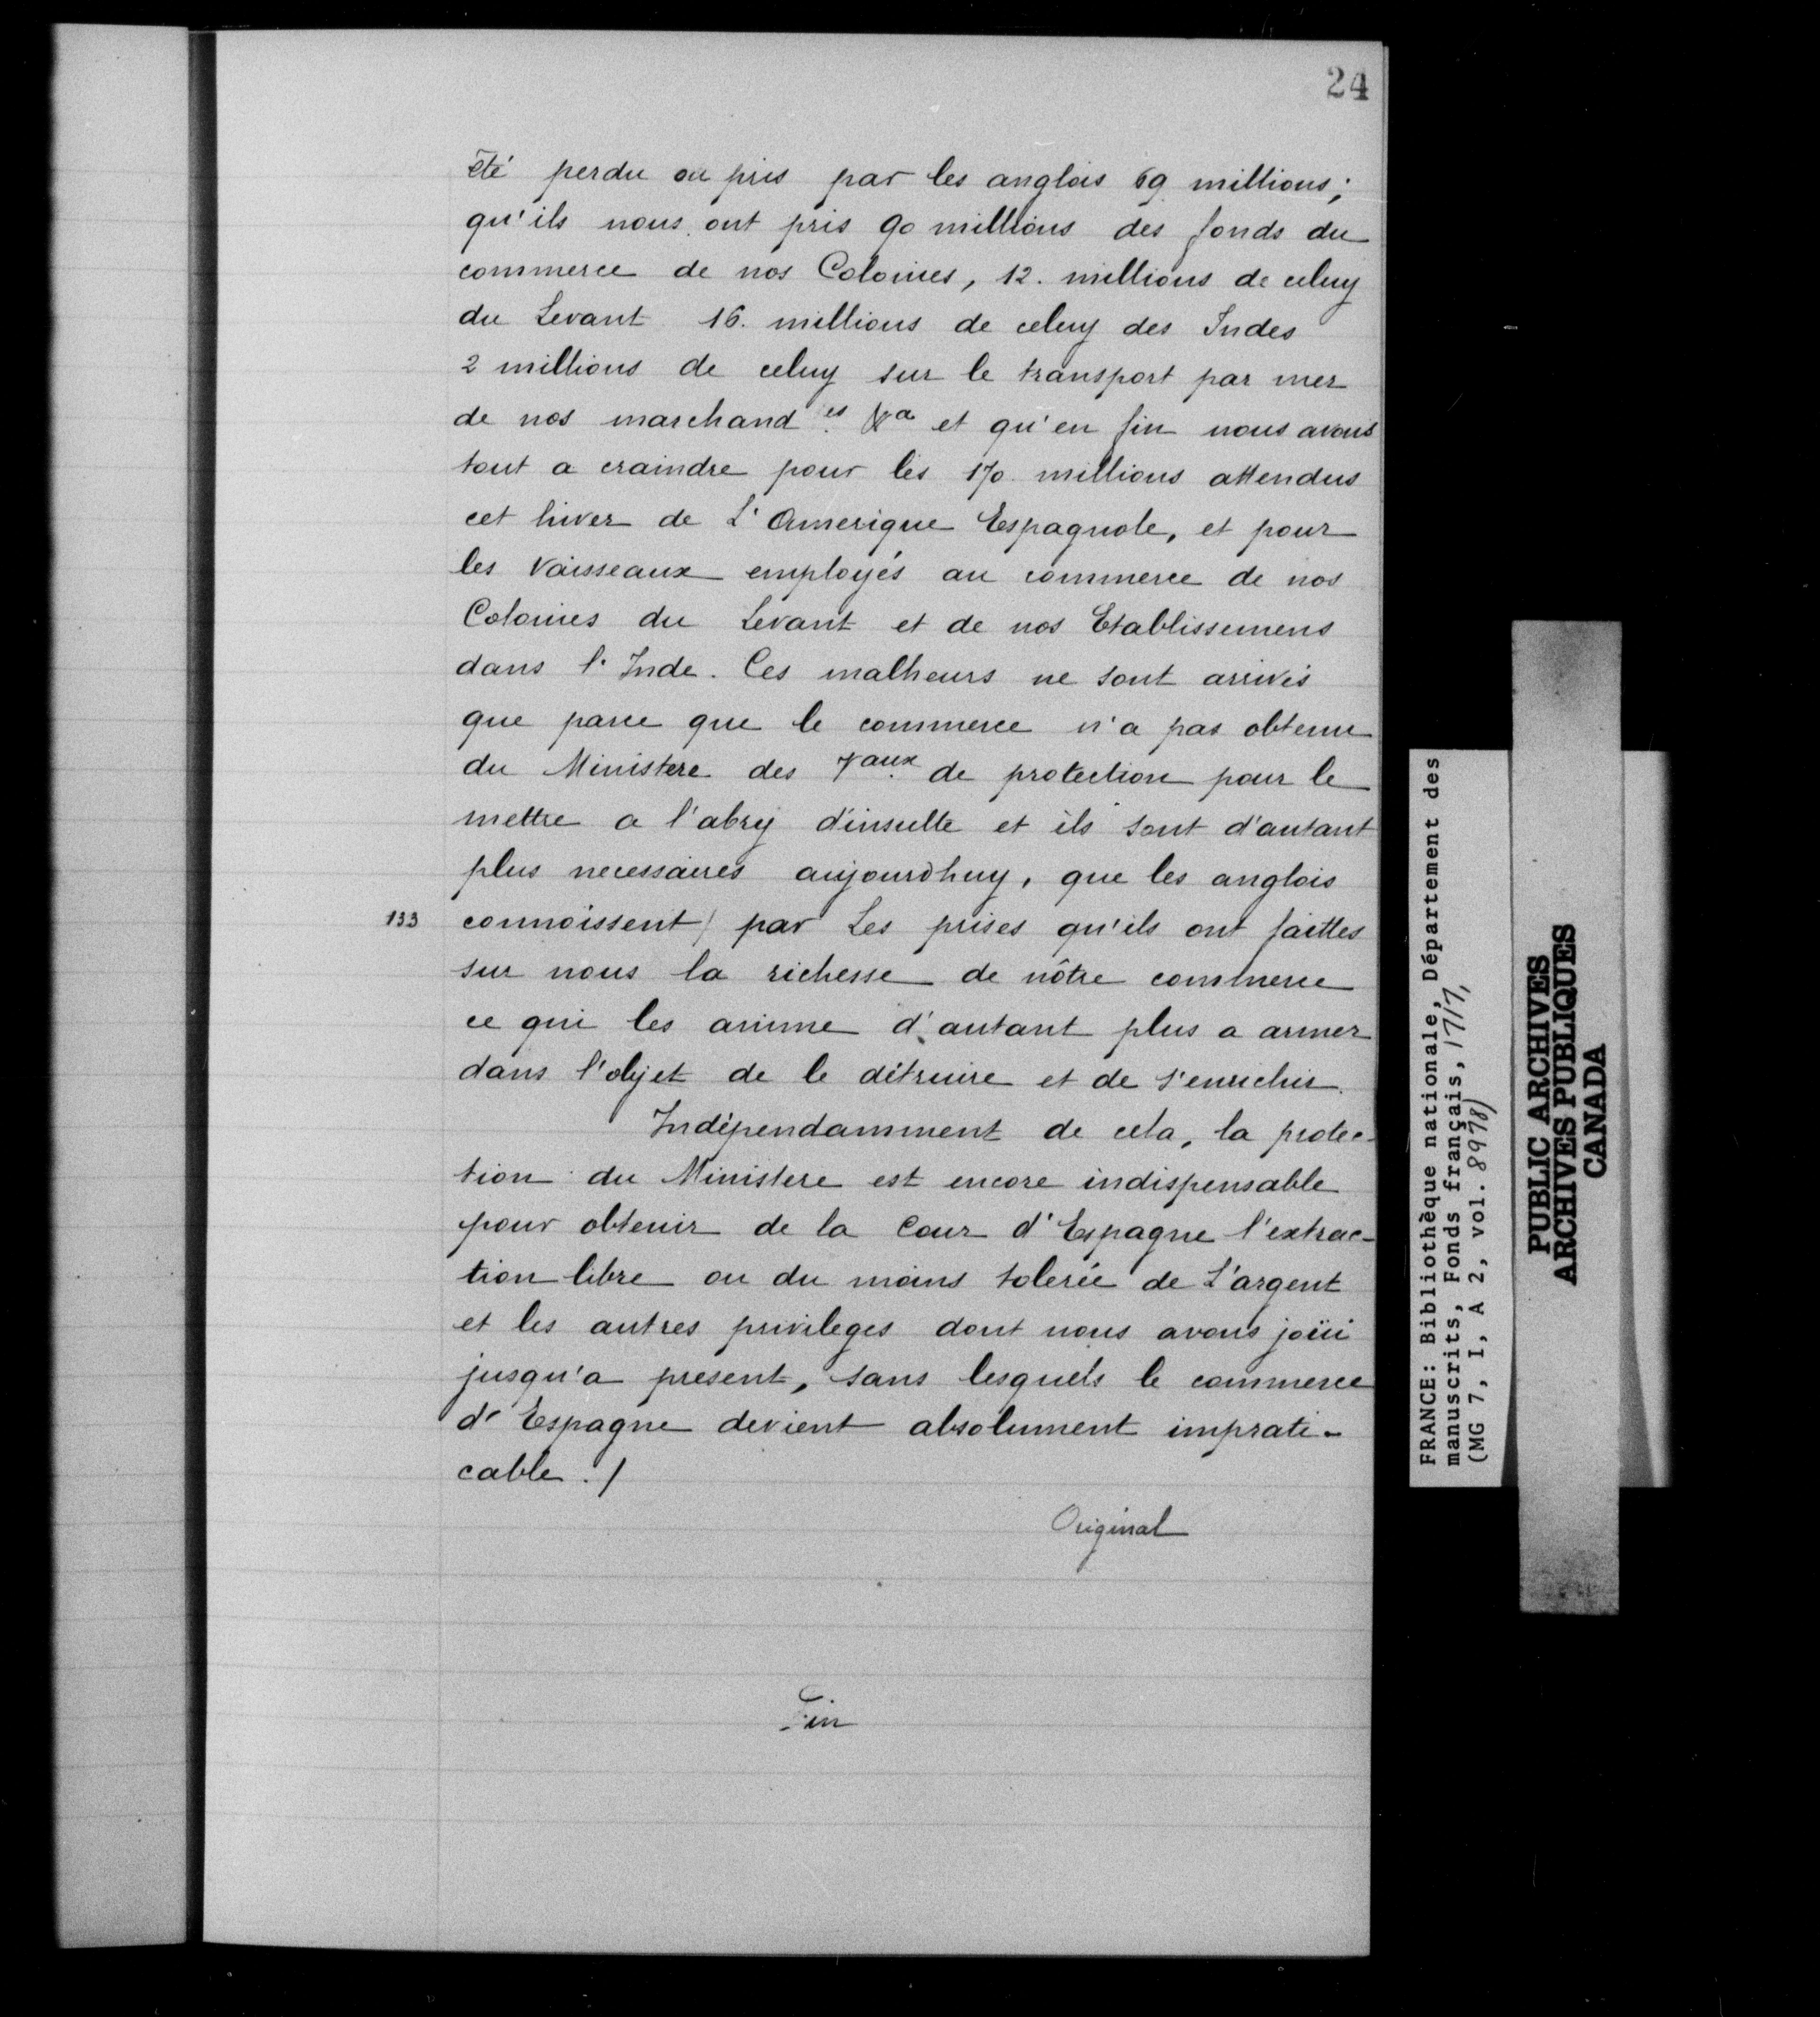 24
été perdu ou pris par les anglois 69 millions;
qu'ils nous ont pris 90 millions des fonds du
commerce de nos Colonies, 12. millions de celuy
du Levant 16. millions de celuy des Indes
2 millions de celuy sur le transport par mer
de nos marchand.es &a et qu'en fin nous avons
tout a craindre pour les 170 millions attendus
cet hiver de L'Amerique Espagnole, et pour
les Vaisseaux employés au commerce de nos
Colonies du Levant et de nos Etablissemens
dans l'Inde. Ces malheurs ne sont arrivés
que parce que le commerce n'a pas obtenu
du Ministere des Vaux. de protection pour le
mettre a l'abry d'insulte et ils sont d'autant
plus necessaires aujourdhuy, que les anglois
133 connoissent / par Les prises qu'ils ont faittes
sur nous la richesse de nôtre commerce
ce qui les anime d'autant plus a armer
dans l'objet de le détruire et de s'enrichir.
Indépendamment de cela, la protec-
tion du Ministere est encore indispensable
pour obtenir de la Cour d'Espagne l'extrac-
tion libre ou du moins tolerée de L'argent
et les autres privileges dont nous avons joüi
jusqu'a present, sans lesquels le commerce
d'Espagne devient absolument imprati-
cable ./
Original
Fin
FRANCE: Bibliothèque nationale, Département des
manuscrits, Fonds français, 1717,
(MG 7, I, A 2, vol. 8978)
PUBLIC ARCHIVES
ARCHIVES PUBLIQUES
CANADA